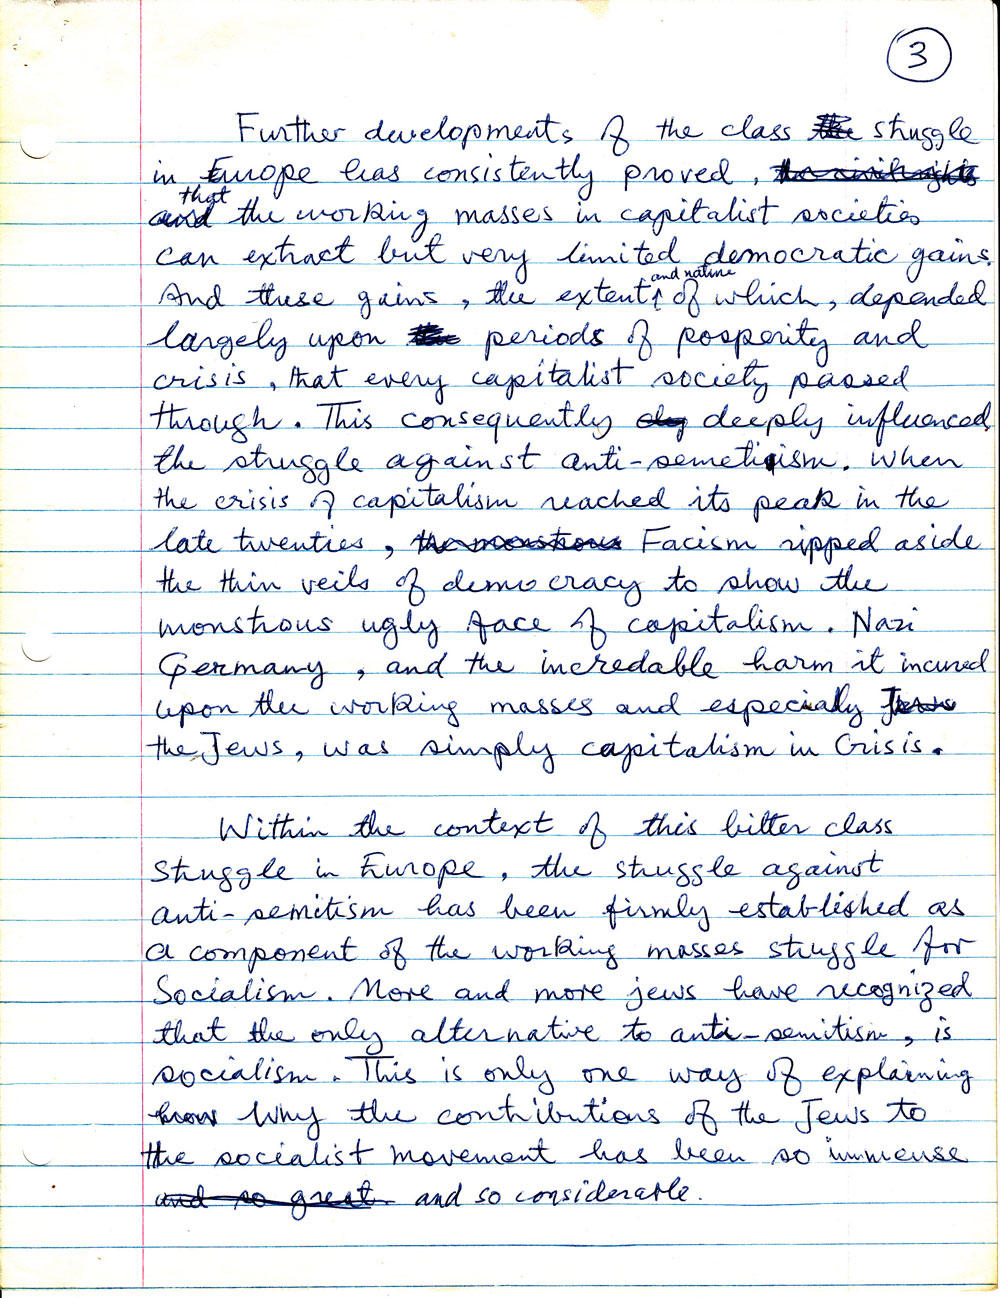 3
Further developments of the class struggle
in Europe has consistently proved,
that
the working masses in capitalist societies
can extract but very limited democratic gains.
and nature
And these gains, the extent of which, depended
largely upon periods of posperity and
crisis, that every capitalist society passed
through. This consequently deeply influenced
the struggle against anti-semeticism. When
the crisis of capitalism reached its peak in the
late twenties, the monstrous Facism ripped aside
the thin veils of democracy to show the
monstrous ugly face of capitalism. Nazi
Germany, and the incredable harm it incured
upon the working masses and especialy Jews
the Jews, was simply capitalism in Crisis.
Within the context of this bitter class
Struggle in Europe, the struggle against
anti-semitism has been firmly established as
a component of the working masses struggle for
Socialism. More and more jews have recognized
that the only alternative to anti-semitism, is
socialism. This is only one way of explaining
how Why the contributions of the Jews to
the socialist movement has been so immense
and so great and so considerable.